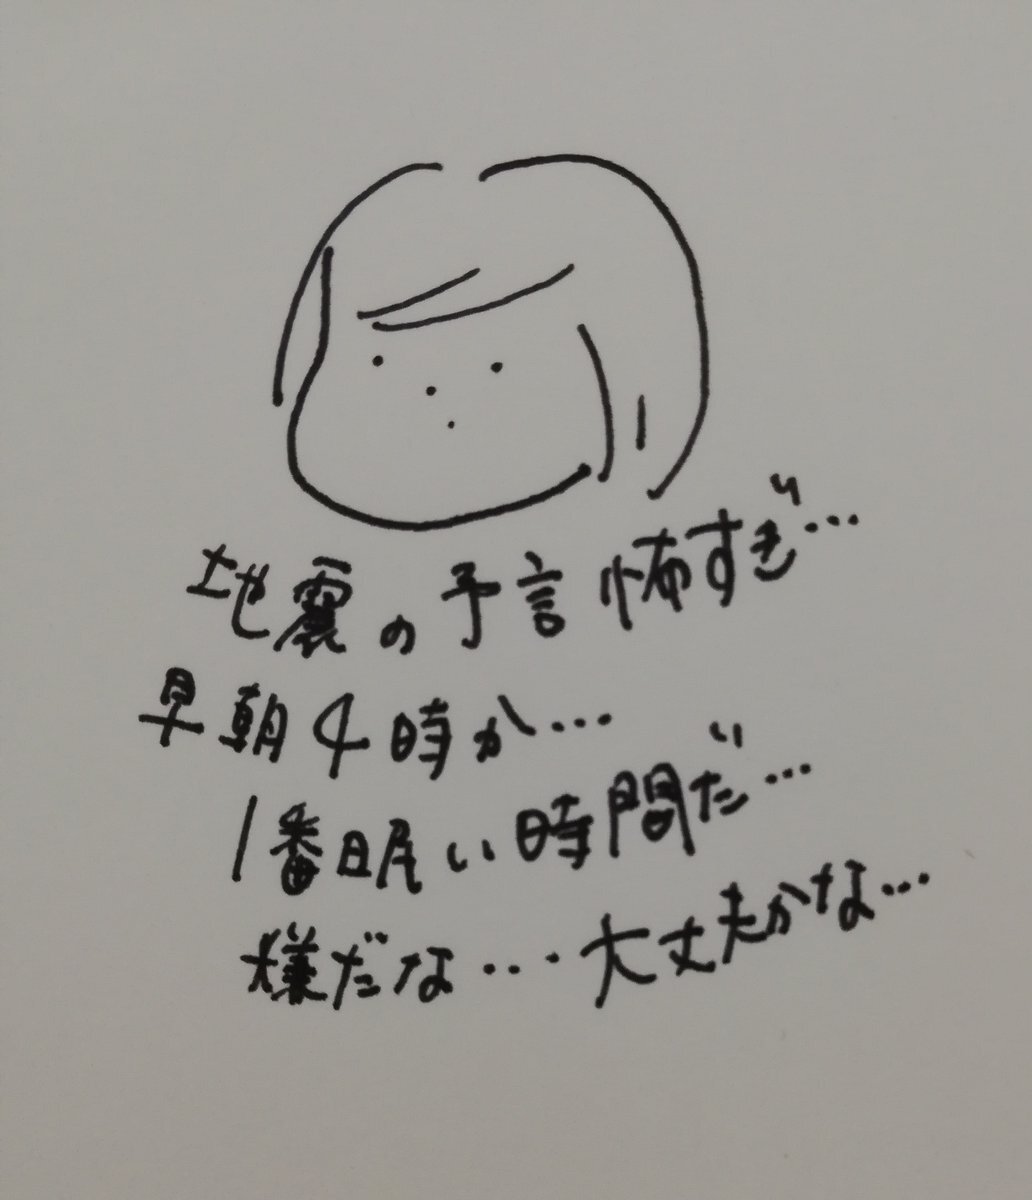 地震の予言怖すぎ…
早朝4時か…
1番眠い時間だ…
嫌だな…大丈夫かな…